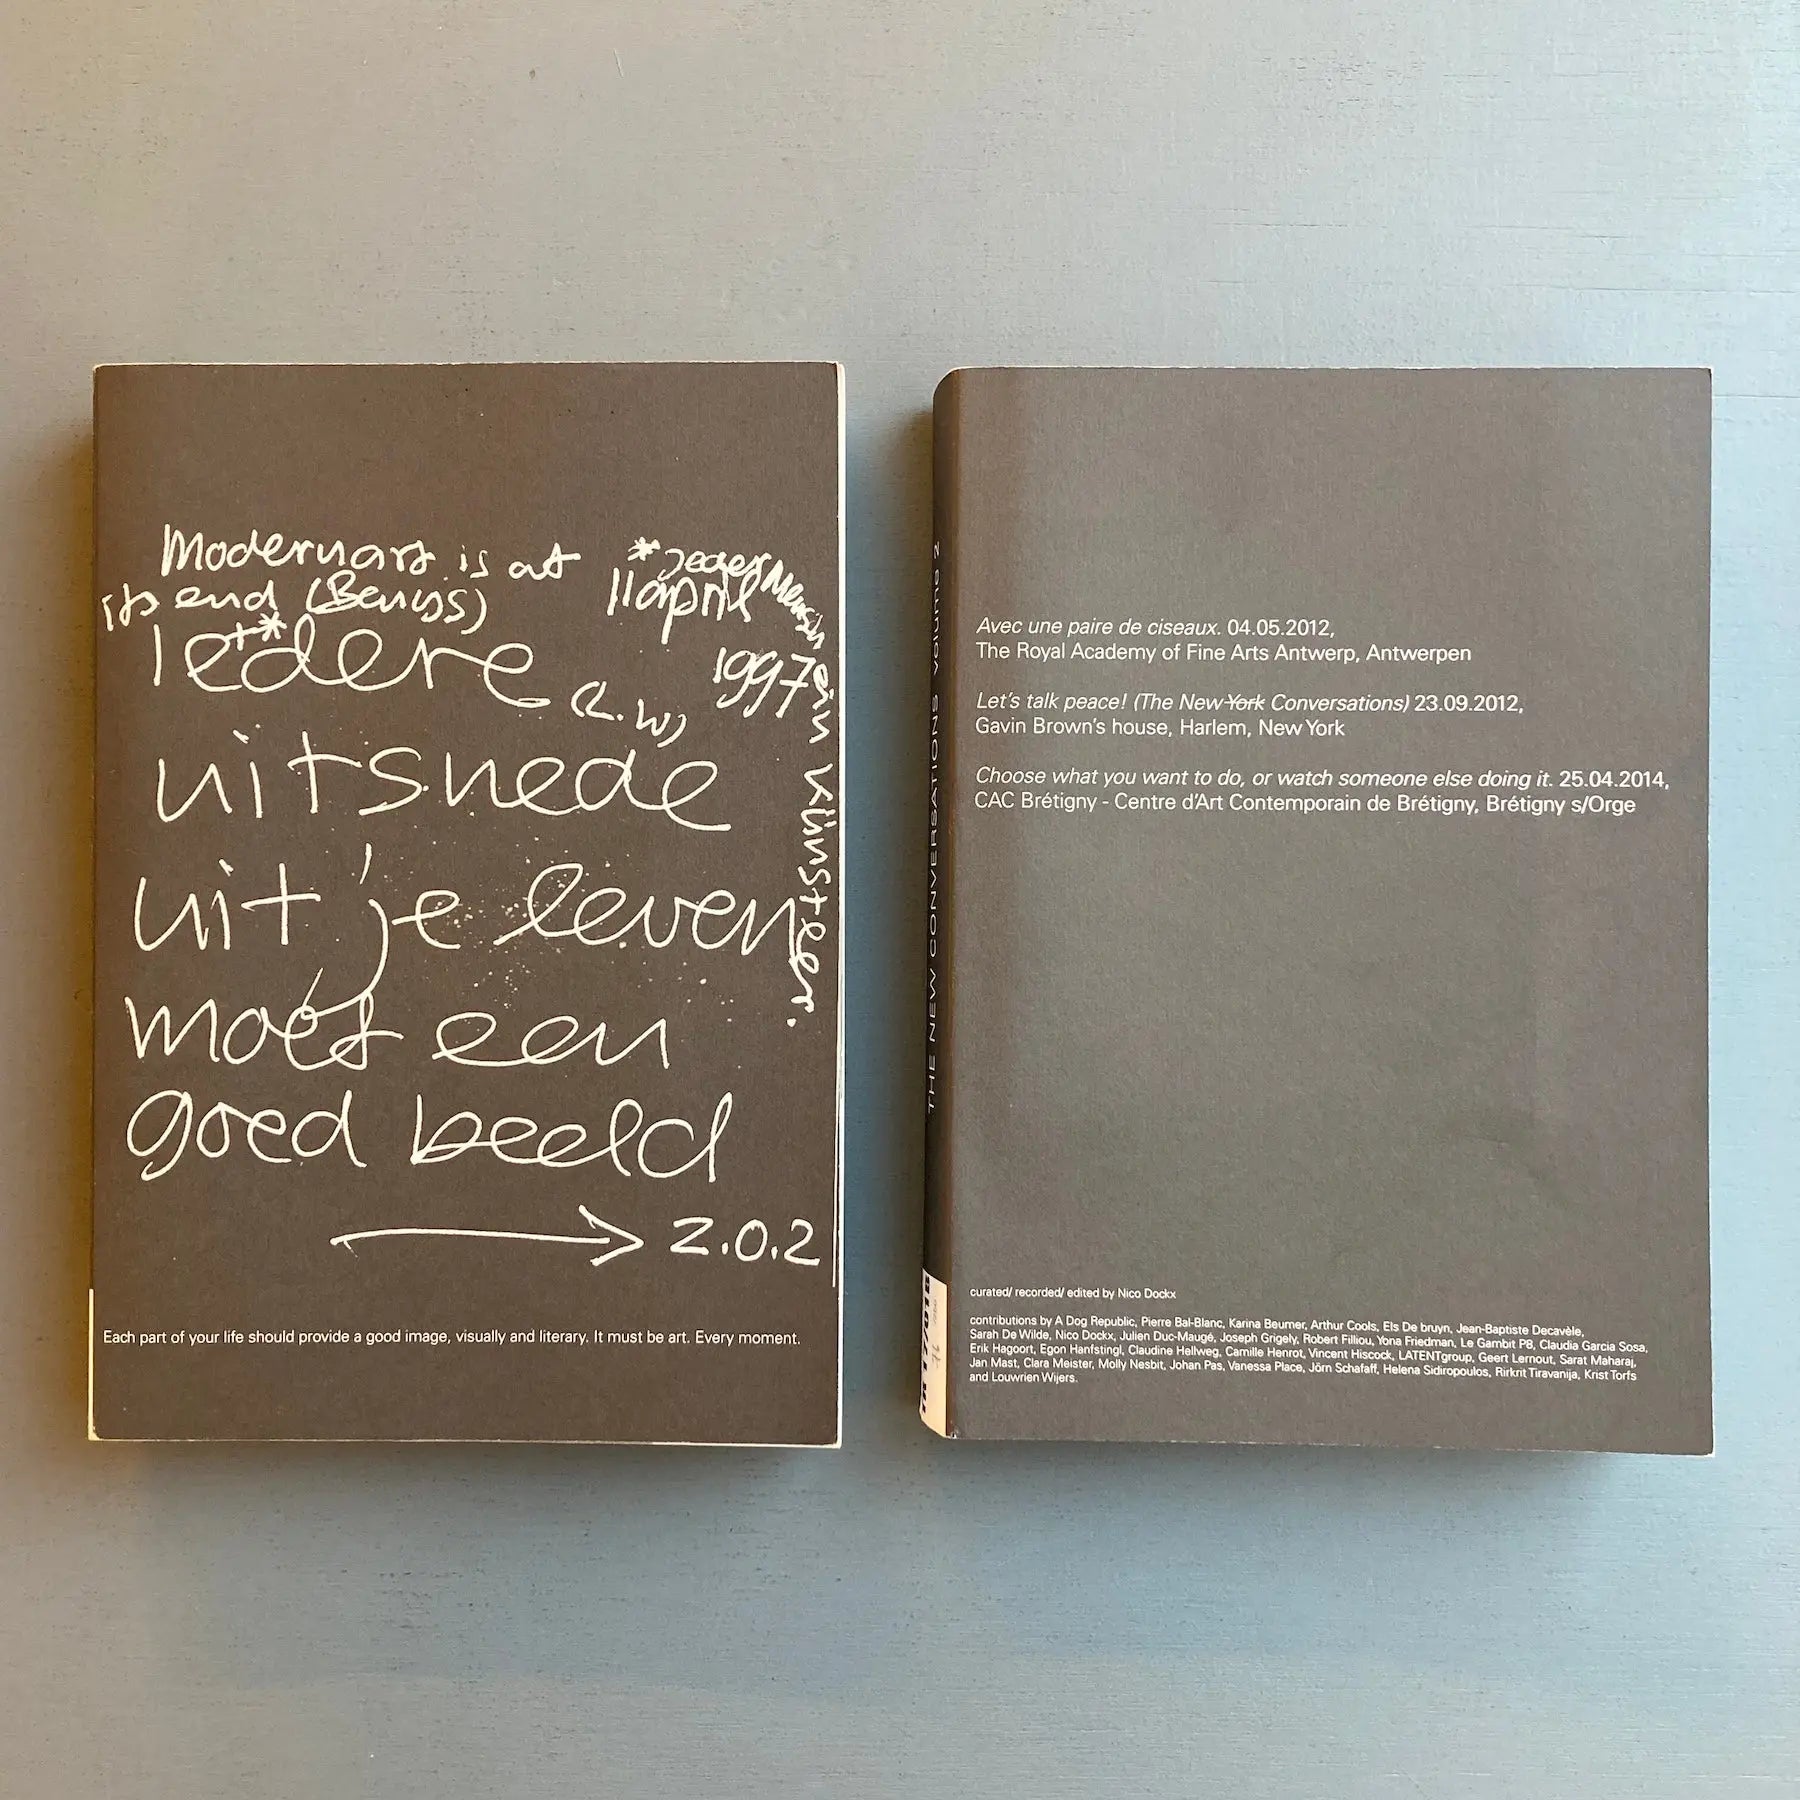 Modernart is at
its end (Beuys)
* Jeder Mensch ein Künstler.
11 april
1997
Iedere
(L.W)
uitsnede
uit je leven
moet een
goed beeld
z.o.z
Each part of your life should provide a good image, visually and literary. It must be art. Every moment.
THE NEW CONVERSATIONS volume 2
Avec une paire de ciseaux. 04.05.2012,
The Royal Academy of Fine Arts Antwerp, Antwerpen
Let's talk peace! (The New York Conversations) 23.09.2012,
Gavin Brown's house, Harlem, New York
Choose what you want to do, or watch someone else doing it. 25.04.2014,
CAC Brétigny - Centre d'Art Contemporain de Brétigny, Brétigny s/Orge
curated/ recorded/ edited by Nico Dockx
contributions by A Dog Republic, Pierre Bal-Blanc, Karina Beumer, Arthur Cools, Els De bruyn, Jean-Baptiste Decavèle,
Sarah De Wilde, Nico Dockx, Julien Duc-Maugé, Joseph Grigely, Robert Filliou, Yona Friedman, Le Gambit P8, Claudia Garcia Sosa,
Erik Hagoort, Egon Hanfstingl, Claudine Hellweg, Camille Henrot, Vincent Hiscock, LATENTgroup, Geert Lernout, Sarat Maharaj,
Jan Mast, Clara Meister, Molly Nesbit, Johan Pas, Vanessa Place, Jörn Schafaff, Helena Sidiropoulos, Rirkrit Tiravanija, Krist Torfs
and Louwrien Wijers.